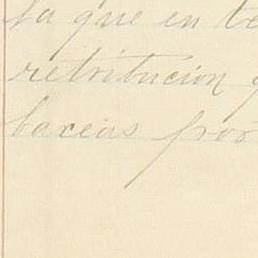 la que en te
retribucion y
baceas pro